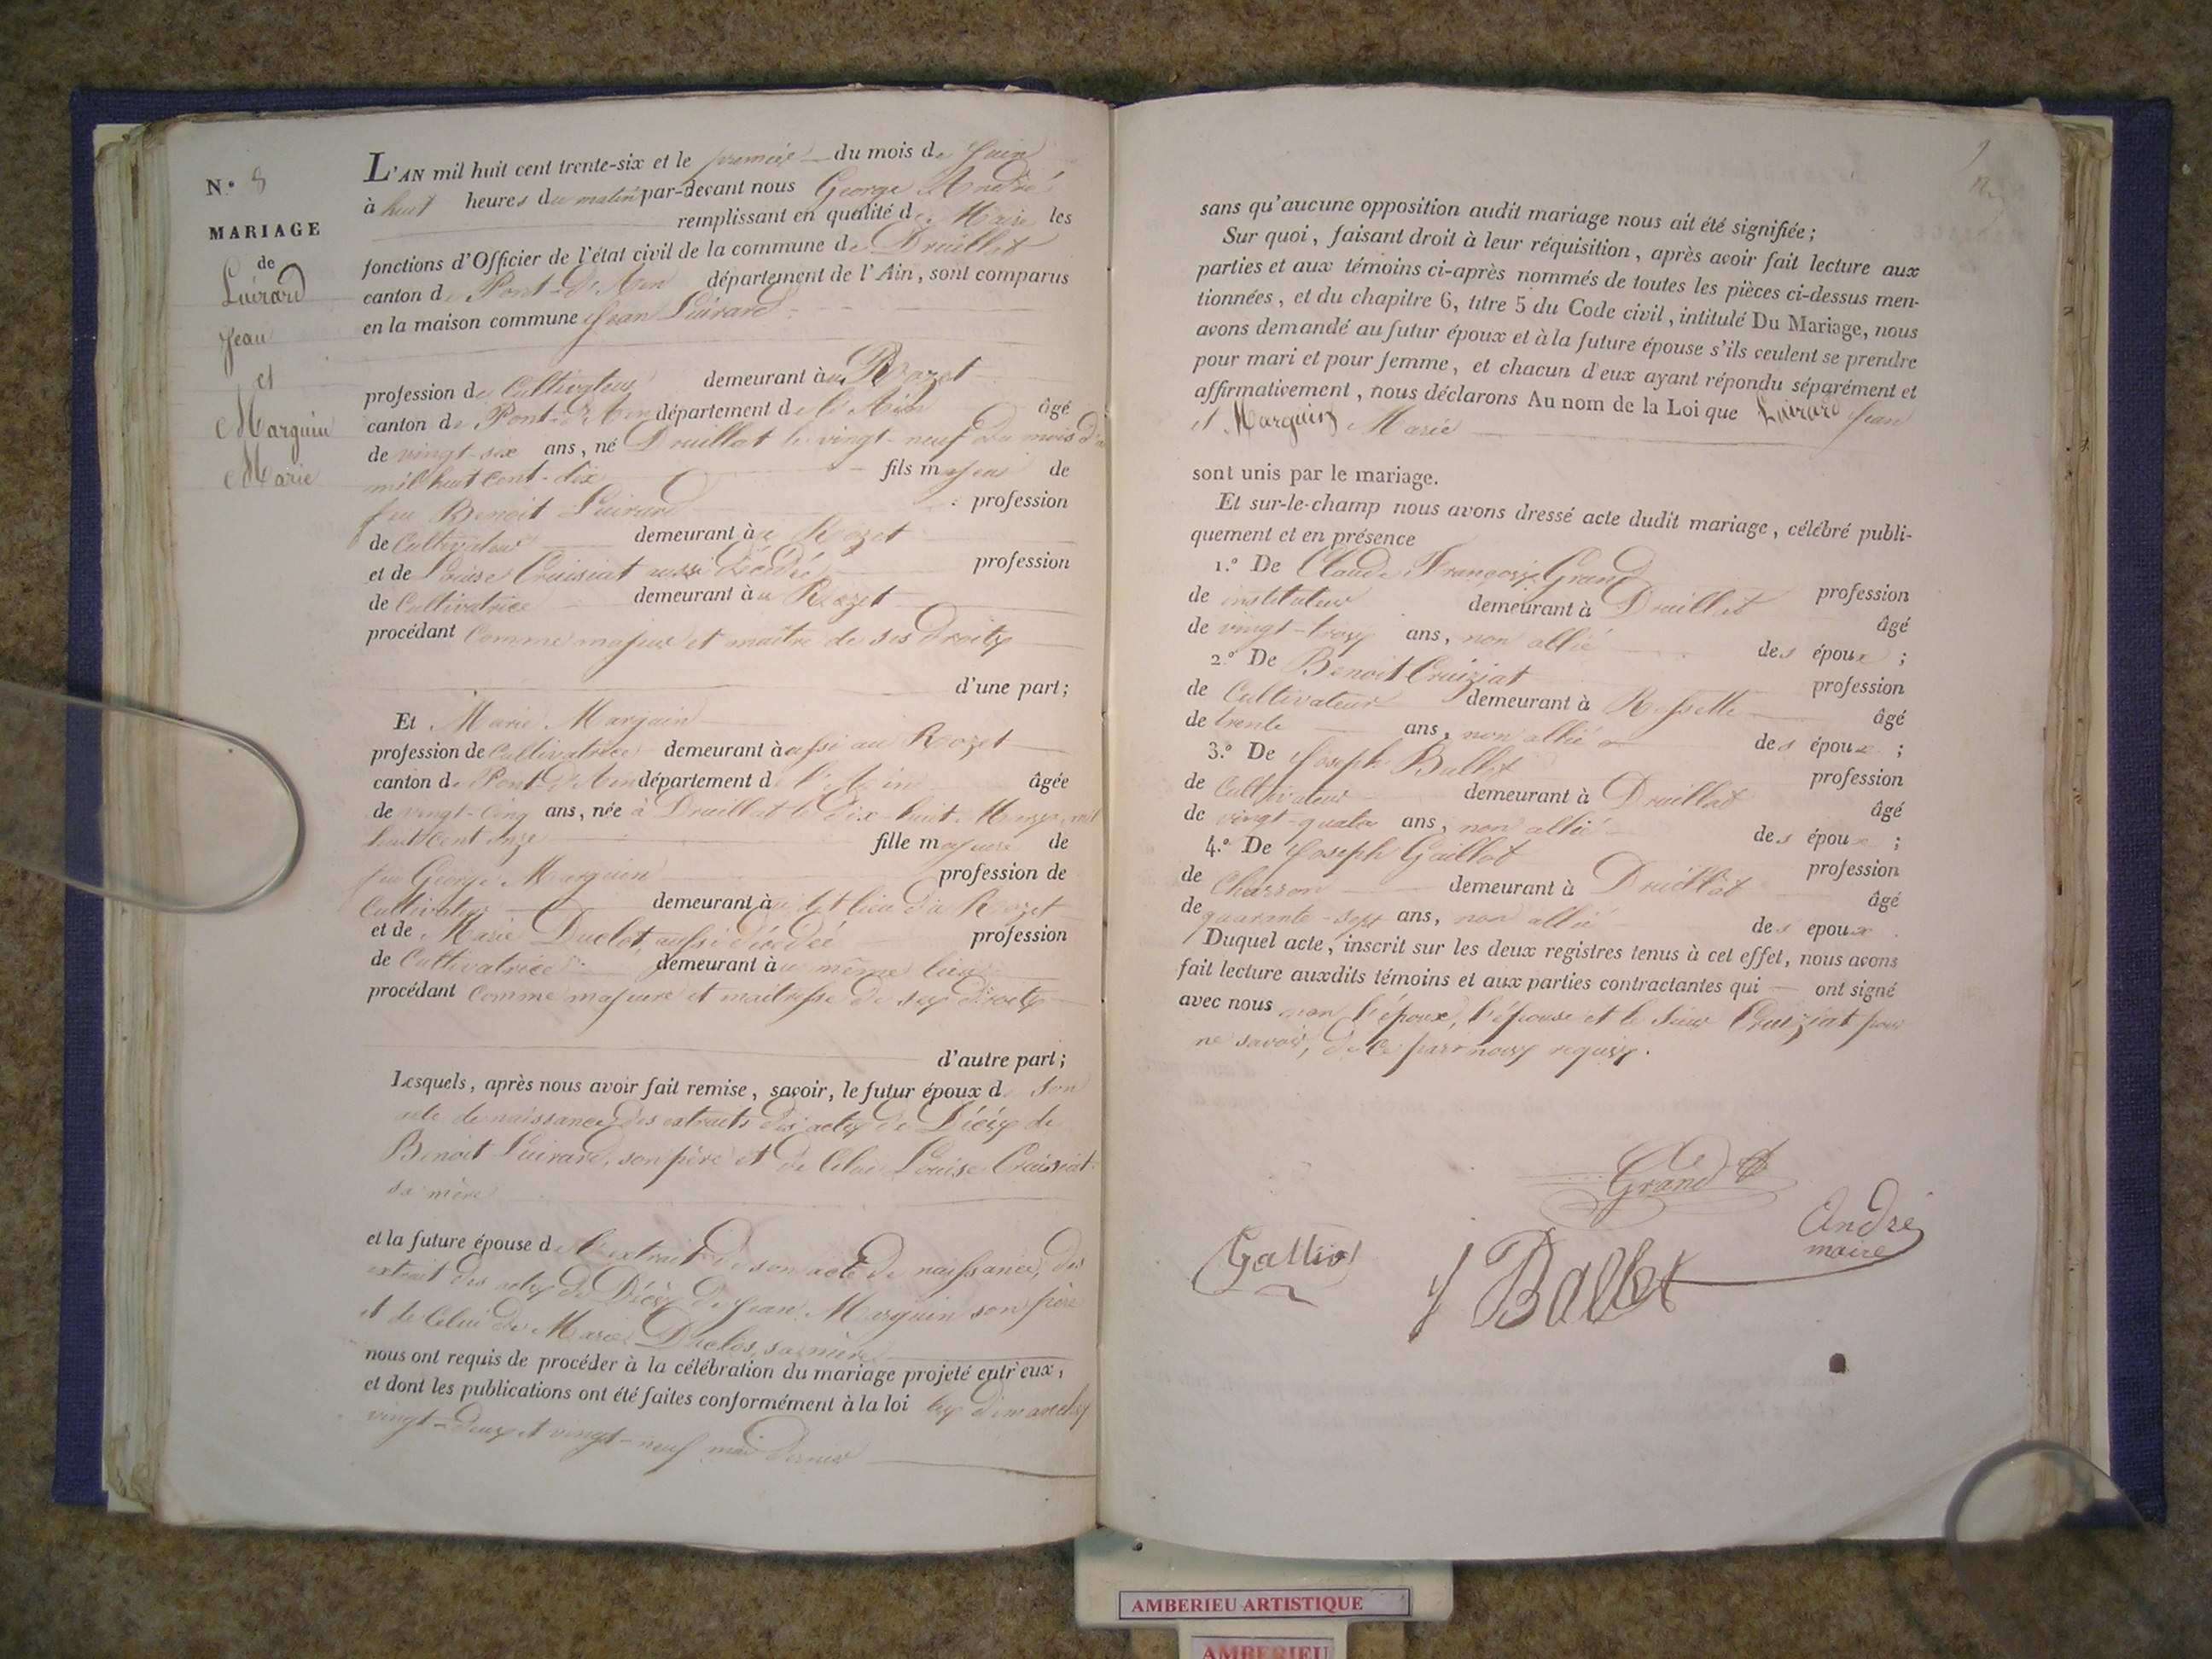 N.° 8
MARIAGE
de
Luirard
Jean
et
Marguin
Marie
L'AN mil huit cent trente-six et le premier du mois de Juin
à huit heures du matin par-devant nous George André
remplissant en qualité de Maire les
fonctions d'Officier de l'état civil de la commune de Druillat
canton de Pont-d'Ain département de l'Ain, sont comparus
en la maison commune Jean Luirard
profession de Cultivateur demeurant au Rozet
canton de Pont-d'Ain département de l'Ain âgé
de vingt-six ans, né Druillat le vingt-neuf du mois
mil huit cent-dix fils majeur de
feu Benoit Luirard profession
de Cultivateur demeurant au Rozet
et de Louise Cruisiat aussi décédée profession
de Cultivatrice demeurant au Rozet
procédant comme majeur et maître de ses droits
d'une part;
Et Marie Marguin
profession de Cultivatrice demeurant à aussi au Rozet
canton de Pont-d'Ain département de l'Ain âgée
de vingt-cinq ans, née à Druillat le dix-huit Mars mil
huit cent onze fille majeure de
feu George Marguin profession de
Cultivateur demeurant au dit lieu du Rozet
et de Marie Duclot, aussi décédée profession
de Cultivatrice demeurant au même lieu
procédant comme majeure et maitresse de ses droits
d'autre part;
Lesquels, après nous avoir fait remise, savoir, le futur époux de son
acte de naissance, des extraits des actes de Décès de
Benoit Luirard, son père et de Celui Louise Cruisiat
sa mère
et la future épouse de l'extrait de son acte de naissance, des
extrait des actes de Décès de Jean Marguin son père
et de Celui de Marie Duclos, sa mère
nous ont requis de procéder à la célébration du mariage projeté entr'eux,
et dont les publications ont été faites conformément à la loi les dimanches
vingt-deux et vingt-neuf mai dernier
sans qu'aucune opposition audit mariage nous ait été signifiée;
Sur quoi, faisant droit à leur réquisition, après avoir fait lecture aux
parties et aux témoins ci-après nommés de toutes les pièces ci-dessus men-
tionnées, et du chapitre 6, titre 5 du Code civil, intitulé Du Mariage, nous
avons demandé au futur époux et à la future épouse s'ils veulent se prendre
pour mari et pour femme, et chacun d'eux ayant répondu séparément et
affirmativement, nous déclarons Au nom de la Loi que Luirard Jean
et Marguin Marie
sont unis par le mariage.
Et sur-le-champ nous avons dressé acte dudit mariage, célébré publi-
quement et en présence
1.° De Claude François Grand profession
de instituteur demeurant à Druillat âgé
de vingt-trois ans, non allié des époux;
2.° De Benoit Cruiziat profession
de Cultivateur demeurant à Rossette âgé
de trente ans, non allié des époux;
3.° De Joseph Ballet profession
de Cultivateur demeurant à Druillat âgé
de vingt-quatre ans, non allié des époux;
4.° De Joseph Gaillot profession
de Charron demeurant à Druillat âgé
de quarante-sept ans, non allié des epoux.
Duquel acte, inscrit sur les deux registres tenus à cet effet, nous avons
fait lecture auxdits témoins et aux parties contractantes qui ont signé
avec nous non l'époux, l'épouse et le Sieur Cruiziat pour
ne savoir, de ce par nous requis.
Grand
André
maire
Galliot
J Ballet
AMBERIEU ARTISTIQUE
AMBERIEU